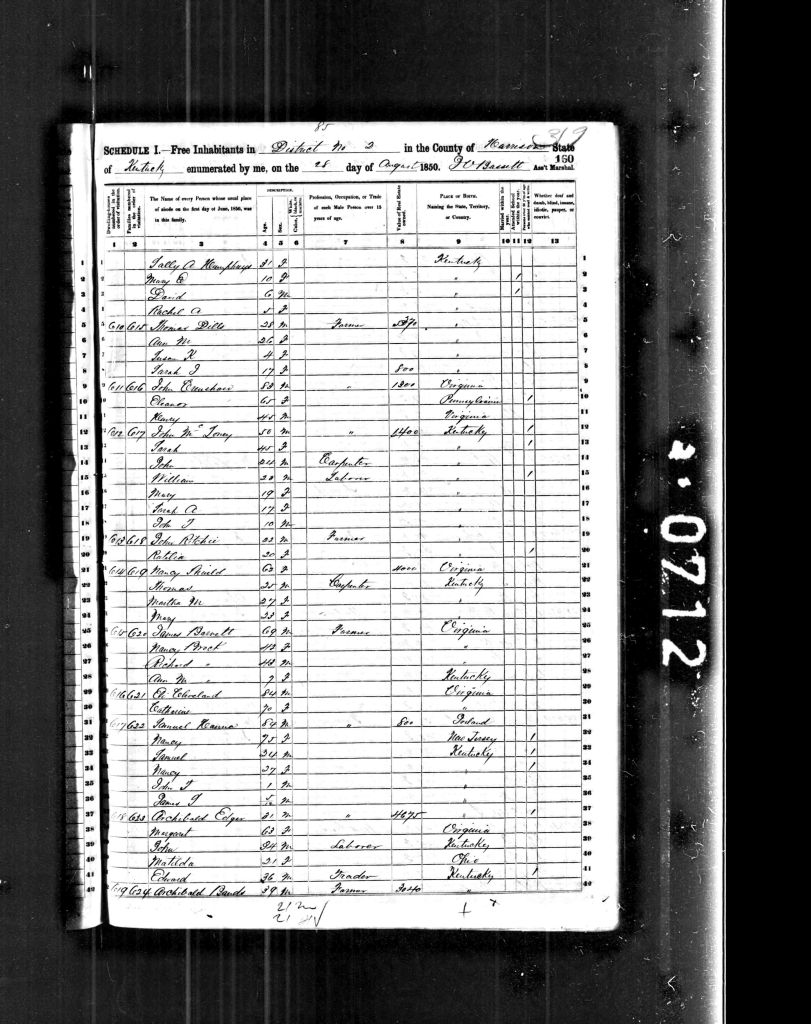 85
319
SCHEDULE I.—Free Inhabitants in District No 2 in the County of Harrison State
of Kentucky enumerated by me, on the 28 day of August 1850. Bassett Ass't Marshal. 160
DESCRIPTION.
Dwelling-houses numbered in the order of visitation. Families numbered in the order of visitation. The Name of every Person whose usual place of abode on the first day of June, 1850, was in this family. Age. Sex. White, black, or mulatto. Profession, Occupation, or Trade of each Male Person over 15 years of age. Value of Real Estate owned. PLACE OF BIRTH. Naming the State, Territory, or Country. Married within the year. Attended School within the year. Persons over 20 y'rs of age who cannot read & write. Whether deaf and dumb, blind, insane, idiotic, pauper, or convict.
1 2 3 4 5 6 7 8 9 10 11 12 13
1 Sally A Humphreys 31 F Kentucky 1
2 Mary E 10 F " 1 2
3 David 6 M " 1 3
4 Rachel A 5 F " 4
5 610 615 Thomas Dills 28 M Farmer " 5
6 Ann M 26 F " 6
7 Susan K 4 F " 7
8 Sarah J 17 F 800 " 8
9 611 616 John 83 M " 1300 Virginia 9
10 Eleanor 65 F Pennsylvania 1 10
11 Henry 45 M Virginia 11
12 612 617 John Mc Loney 50 M " 1400 Kentucky 1 12
13 Sarah 45 F " 1 13
14 John 24 M Carpenter " 14
15 William 20 M Laborer " 1 15
16 Mary 19 F " 16
17 Sarah A 17 F " 17
18 John T 10 M " 18
19 613 618 John Ritchie 22 M Farmer " 19
20 20 F " 1 20
21 614 619 Nancy Shields 63 F 4000 Virginia 21
22 Thomas 25 M Carpenter Kentucky 22
23 Martha M 27 F " 23
24 Mary 23 F " 24
25 615 620 James Barnett 69 M Farmer Virginia 25
26 Nancy Brock 42 F " 26
27 Richard " 48 M " 27
28 Ann M " 7 F Kentucky 28
29 616 621 Cleveland 84 M Virginia 29
30 Catharine 70 F " 30
31 617 622 Samuel Hanna 84 M " 800 Ireland 31
32 Nancy 75 F New Jersey 1 32
33 Samuel 34 M Kentucky 1 33
34 Nancy 27 F " 1 34
35 John T 1 M " 35
36 James M " 36
37 618 623 Archibald Edgar M " 4675 " 1 37
38 Margaret 63 F Virginia 38
39 John 24 M Laborer Kentucky 39
40 Matilda 21 F Ohio 40
41 Edward 36 M Trader Kentucky 1 41
42 619 624 Archibald 39 M Farmer 3040 " 42
21 m
21
0712